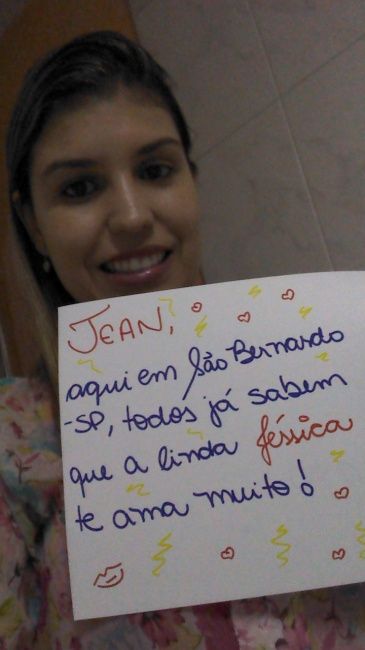 JEAN,
aqui em São Bernardo
-SP, todos já sabem
que a linda Jéssica
te ama muito!